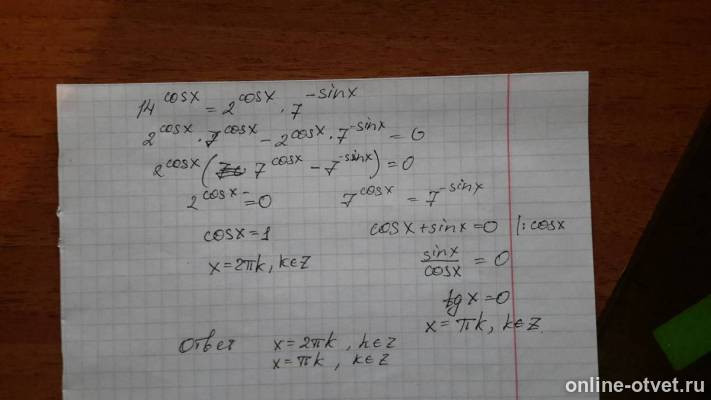 14^cosx = 2^cosx · 7^-sinx
2^cosx · 7^cosx - 2^cosx · 7^-sinx = 0
2^cosx (7^cosx - 7^-sinx) = 0
2^cosx = 0 7^cosx = 7^-sinx
cosx = 1 cosx + sinx = 0 |: cosx
x = 2πk, k∈Z sinx/cosx = 0
tgx = 0
x = πk, k∈Z.
Ответ x = 2πk, k∈Z
x = πk, k∈Z
online-otvet.ru